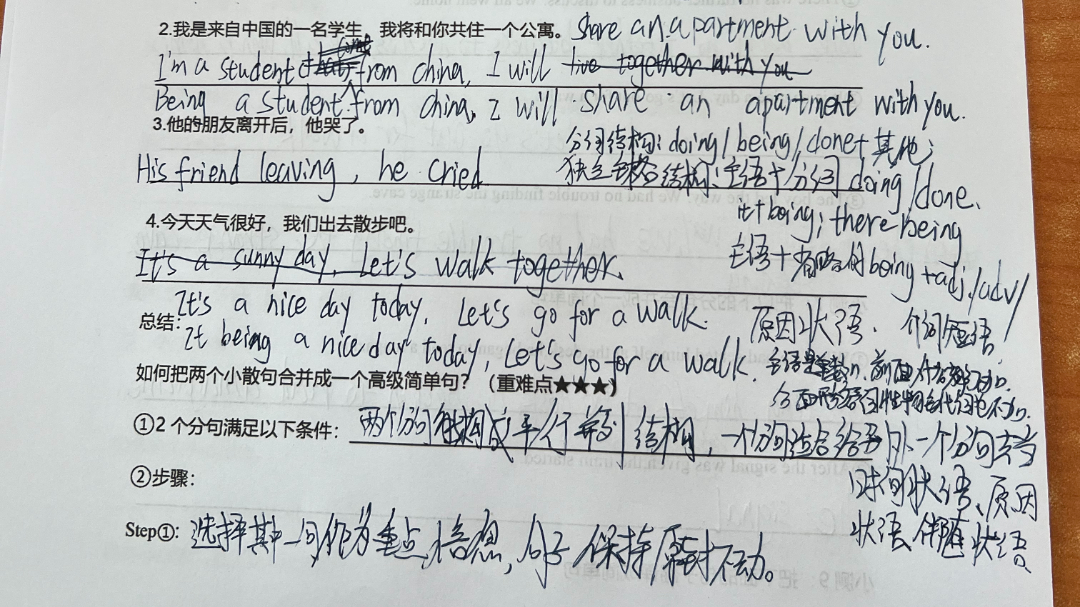 2.我是来自中国的一名学生，我将和你共住一个公寓。share an apartment with you.
I'm a student from china, I will live together with you
Being a student from china, I will share an apartment with you.
3.他的朋友离开后，他哭了。
分词结构：doing/being/done+其他；
His friend leaving, he cried
独立主格结构：主语+分词 doing/done.
it+being; there being
4.今天天气很好，我们出去散步吧。
主语+省略的being+adj./adv/
It's a sunny day, Let's walk together.
It's a nice day today, Let's go for a walk.
原因状语. 介词短语.
总结：
It being a nice day today, Let's go for a walk.
如何把两个小散句合并成一个高级简单句？（重难点★★★）
①2个分句满足以下条件：两个分句能构成平行并列结构，一个分句适合给另外一个分句去当
时间状语、原因
②步骤：
状语、伴随状语
Step①：选择其中一句作为重点信息，句子保持原封不动。